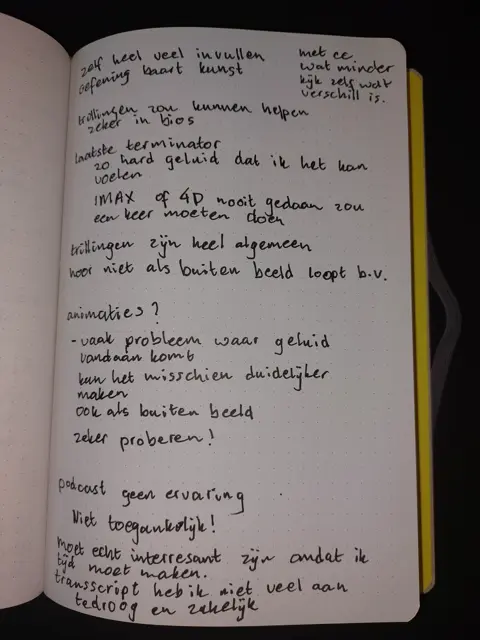 zelf heel veel invullen
oefening baart kunst
met cc
wat minder
kijk zelf wat
verschill is.
trillingen zou kunnen helpen
zeker in bios
laatste terminator
zo hard geluid dat ik het kan
voelen
IMAX of 4D nooit gedaan zou
een keer moeten doen
trillingen zijn heel algemeen
hoor niet als buiten beeld loopt b.v.
animaties?
- vaak probleem waar geluid
vandaan komt
kan het misschien duidelijker
maken
ook als buiten beeld
zeker proberen!
podcast geen ervaring
Niet toegankelijk!
moet echt interresant zijn omdat ik
tijd moet maken.
transscript heb ik niet veel aan
te droog en zakelijk